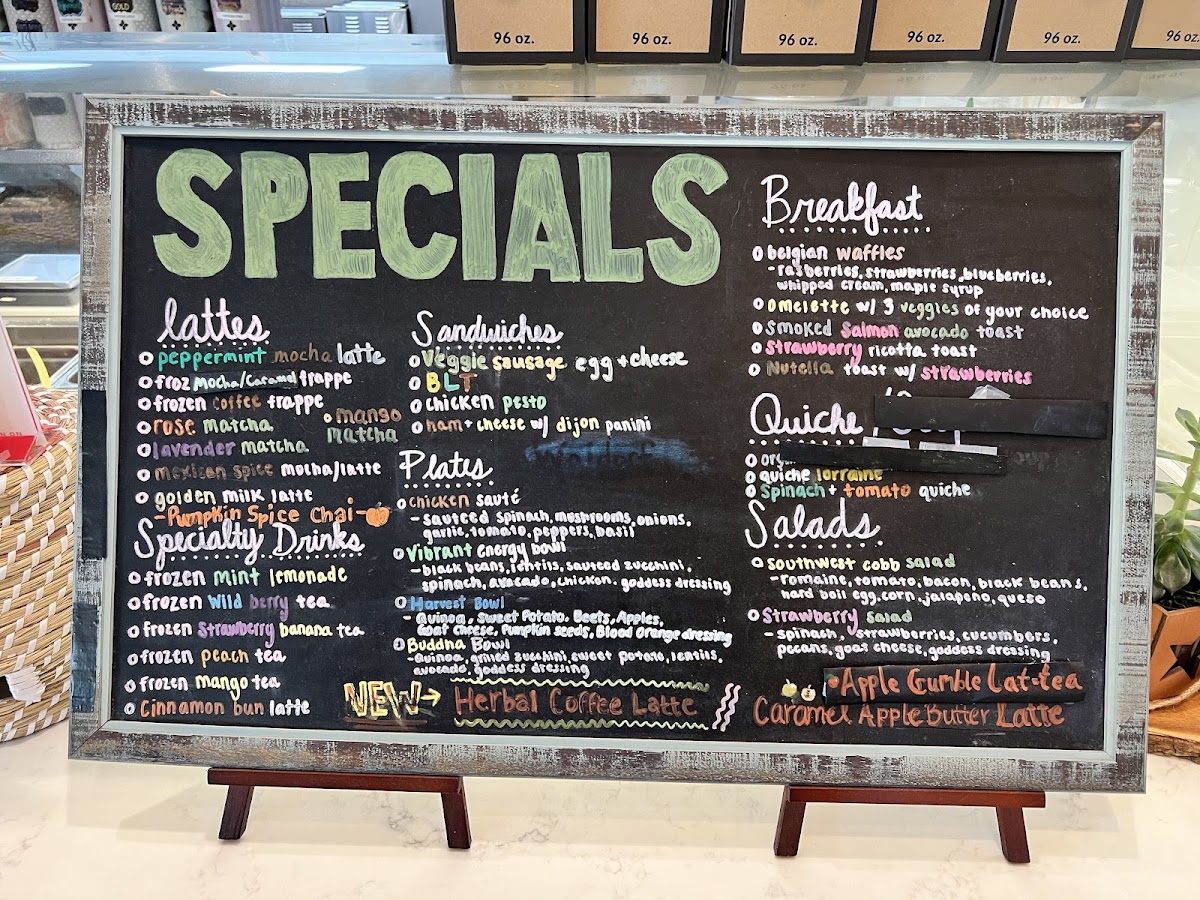 GOLD
96 oz.
96 oz.
96 oz.
96 oz.
96 oz.
96 oz.
SPECIALS
lattes
peppermint mocha latte
froz Mocha/Caramel frappe
frozen coffee frappe
rose matcha
mango
matcha
lavender matcha
mexican spice mocha/latte
golden milk latte
-Pumpkin Spice Chai-
Specialty Drinks
frozen mint lemonade
frozen wild berry tea
frozen strawberry banana tea
frozen peach tea
frozen mango tea
Cinnamon bun latte
Sandwiches
Veggie sausage egg + cheese
BLT
chicken pesto
ham + cheese w/ dijon panini
Plates
chicken sauté
- sauteed spinach, mushrooms, onions,
garlic, tomato, peppers, basil
Vibrant energy bowl
- black beans, lentils, sauteed zucchini,
spinach, avocado, chicken. goddess dressing
Harvest Bowl
- Quinoa, Sweet Potato, Beets, Apples,
Goat cheese, Pumpkin seeds, Blood orange dressing
Buddha Bowl
- Quinoa, grilled zucchini, sweet potato, lentils,
avocado, goddess dressing
NEW→ Herbal Coffee Latte
Breakfast
belgian waffles
- rasberries, strawberries, blueberries,
whipped cream, maple syrup
omelette w/ 3 veggies of your choice
smoked salmon avocado toast
Strawberry ricotta toast
Nutella toast w/ strawberries
Quiche
quiche lorraine
Spinach + tomato quiche
Salads
southwest cobb salad
- romaine, tomato, bacon, black beans,
hard boil egg, corn, jalapeno, queso
Strawberry salad
- spinach, strawberries, cucumbers,
pecans, goat cheese, goddess dressing
Apple Crumble Lat-tea
Caramel Apple Butter Latte